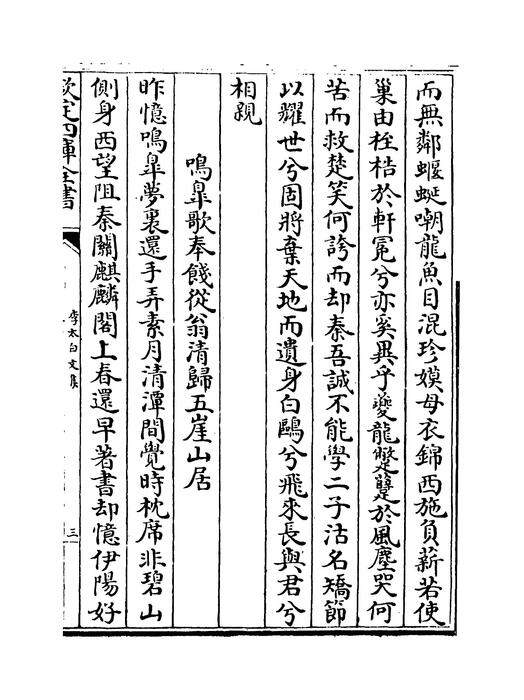 而無鄰蝘蜓嘲龍魚目混珍嫫母衣錦西施負薪若使
巢由桎梏於軒冕兮亦奚異乎夔龍蹩躠於風塵哭何
苦而救楚笑何誇而却秦吾誠不能學二子沽名矯節
以耀世兮固將棄天地而遺身白鷗兮飛來長與君兮
相親
鳴臯歌奉餞從翁清歸五崖山居
昨憶鳴臯夢裏還手弄素月清潭間覺時枕席非碧山
側身西望阻秦關麒麟閣上春還早著書却憶伊陽好
欽定四庫全書
李太白文集
三